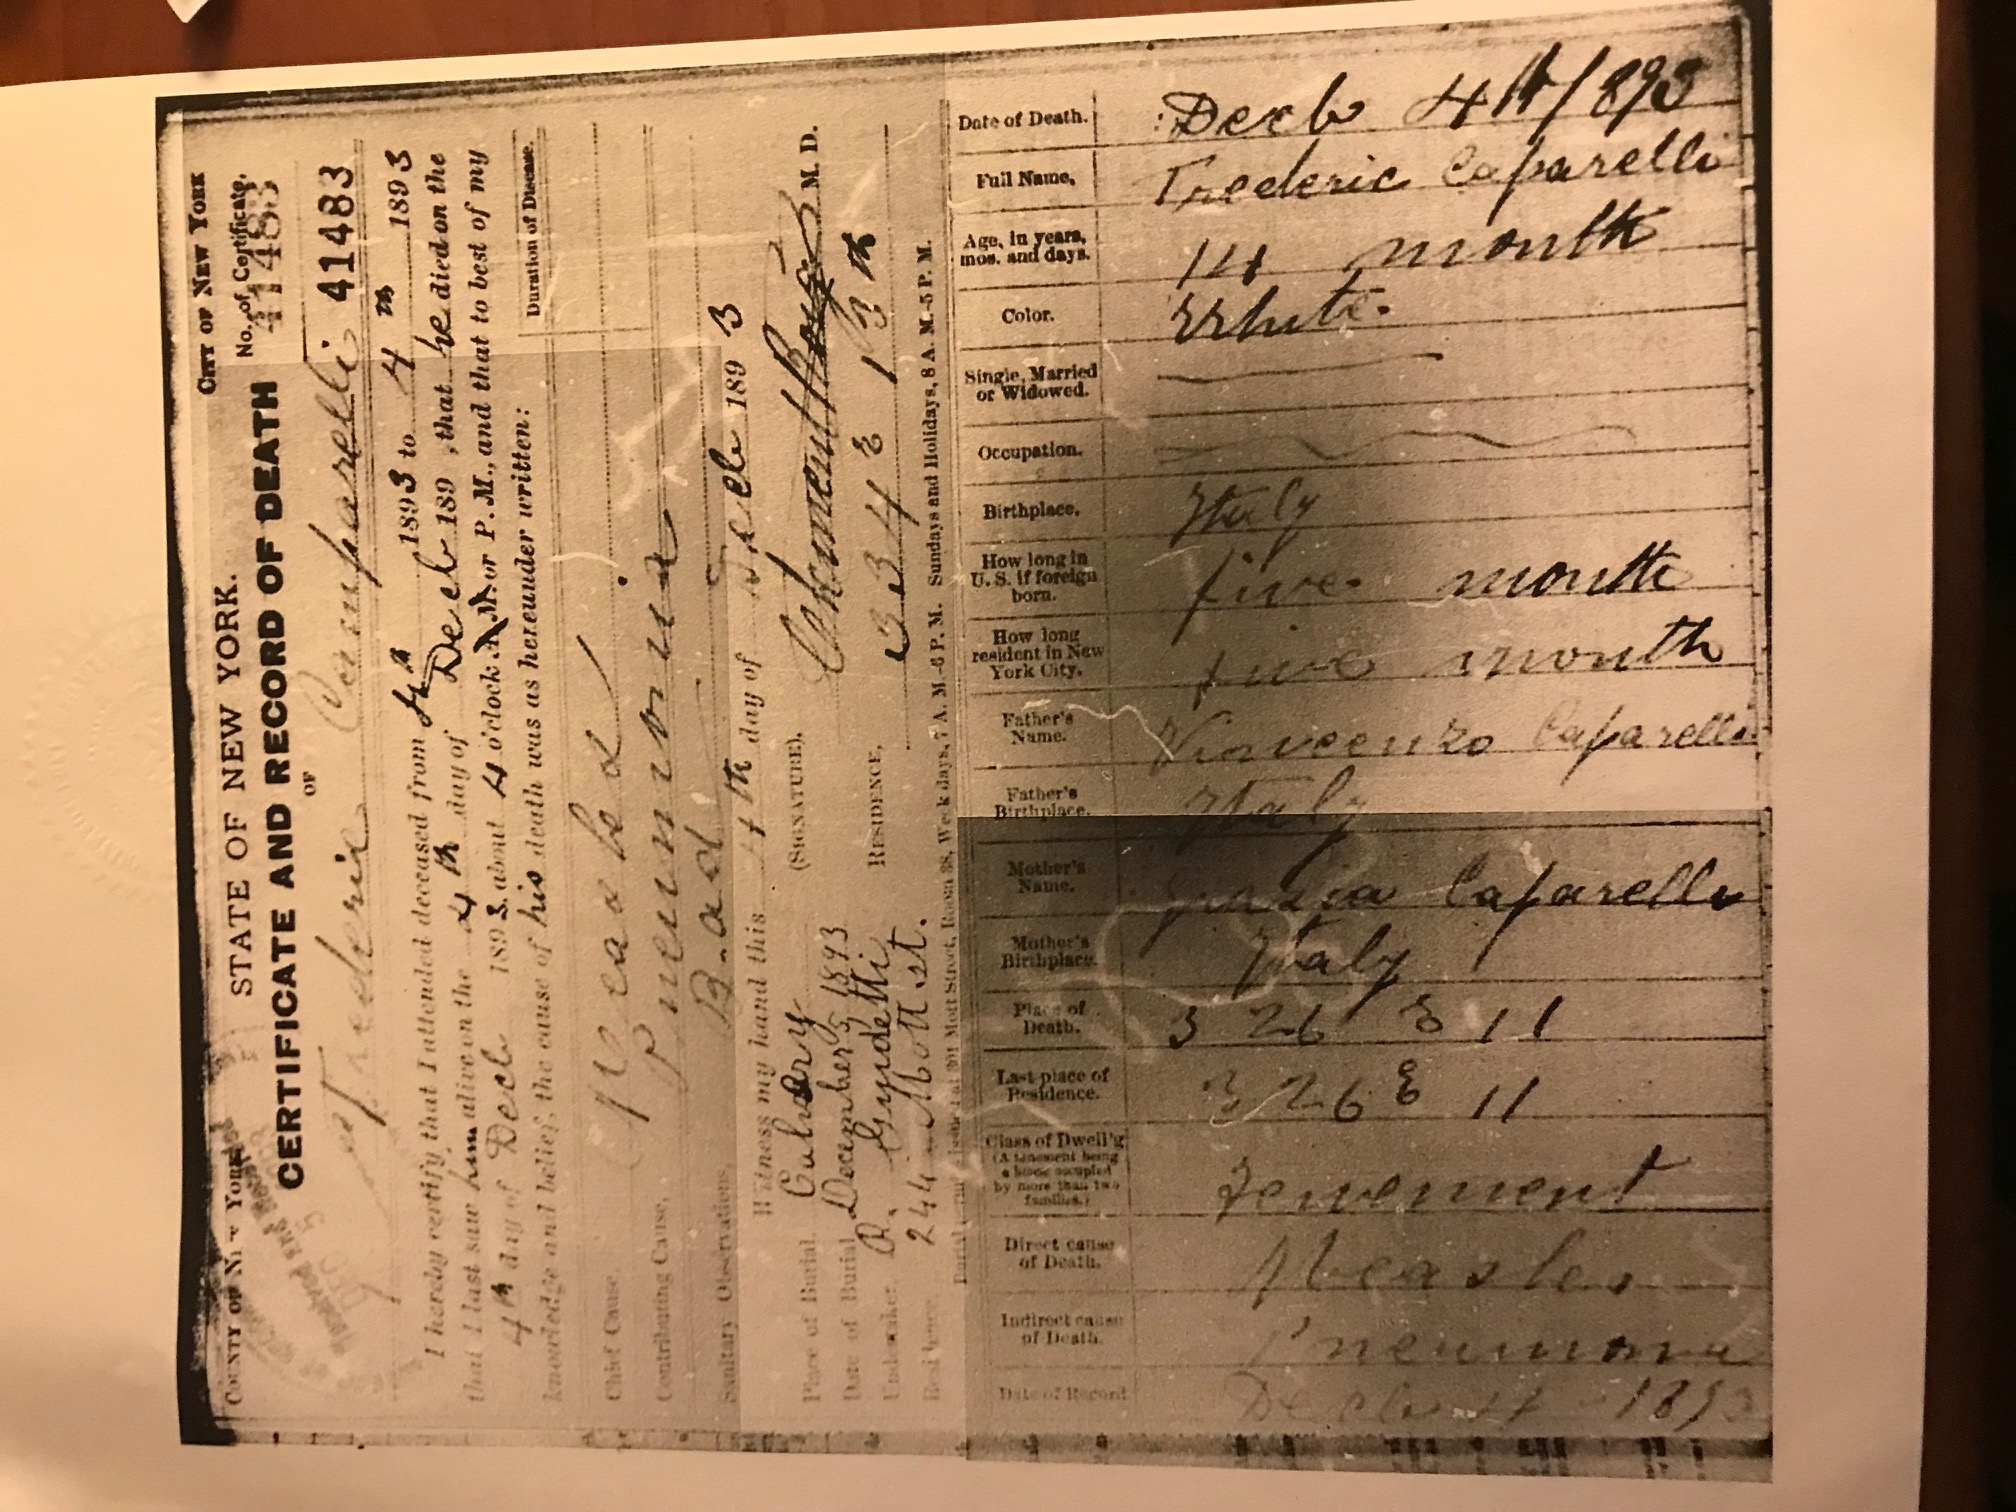 STATE OF NEW YORK.
COUNTY OF NEW YORK
CITY OF NEW YORK
CERTIFICATE AND RECORD OF DEATH
No. of Certificate.
41483
OF
41483
Frederic Camparelli
I hereby certify that I attended deceased from 4th 1893 to 4 th 1893
that I last saw him alive on the 4 th day of Decb 189 , that he died on the
4th day of Decb 1893, about 4 o'clock A.M. or P.M., and that to best of my
knowledge and belief, the cause of his death was as hereunder written:
Duration of Disease.
Chief Cause, Measles
Contributing Cause, Pneumonia
Sanitary Observations, Bad
Witness my hand this 4 th day of Decb 1893
Place of Burial, Calvary
(SIGNATURE), M. D.
Date of Burial, December 5 1893
RESIDENCE, 334 E 13 th
Undertaker,
Residence, 244 Mott st.
301 Mott Street, Room 38, Week days, 7 A. M.-6 P. M. Sundays and Holidays, 8 A. M.-5 P. M.
Date of Death. Decb 4th/893
Full Name, Frederic Caparelli
Age, in years, mos. and days. 14 month
Color. White.
Single, Married or Widowed.
Occupation.
Birthplace. Italy
How long in U. S. if foreign born. five month
How long resident in New York City. five month
Father's Name. Vinveenzo Caparelli
Father's Birthplace. Italy
Mother's Name. Grazia Caparelli
Mother's Birthplace. Italy
Place of Death. 326 E 11
Last place of Residence. 326 E 11
Class of Dwell'g (A tenement being a house occupied by more than two families.) Tenement
Direct cause of Death. Measles
Indirect cause of Death. Pneumonia
Date of Record Decb 4 - 1893